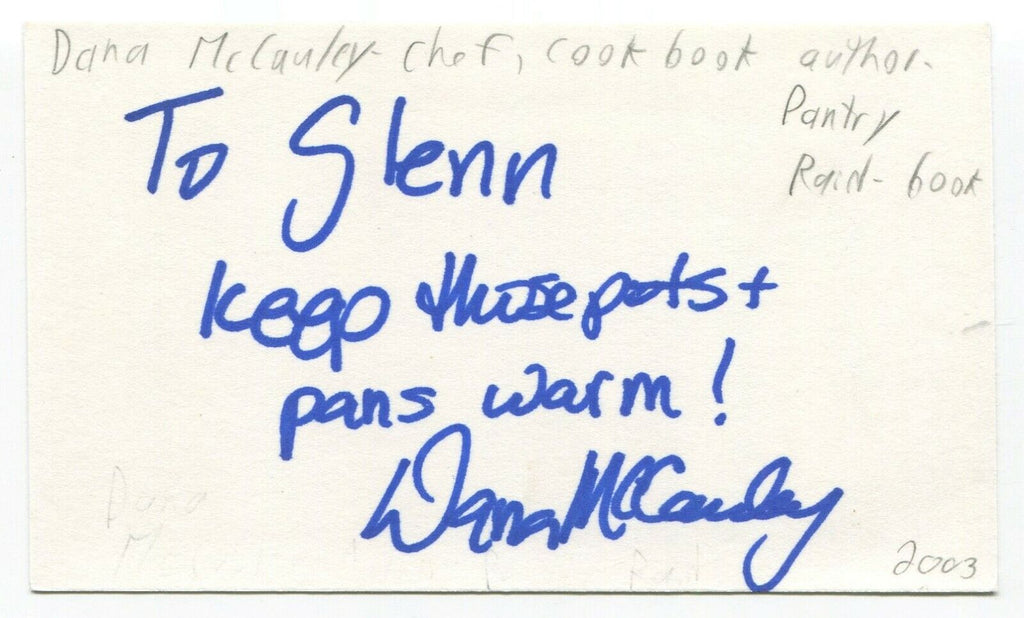 Dana McCauley- chef, cook book author-
Pantry
Raid- book
To Glenn
keep those pots +
pans warm!
Dana McCauley
Dana
2003